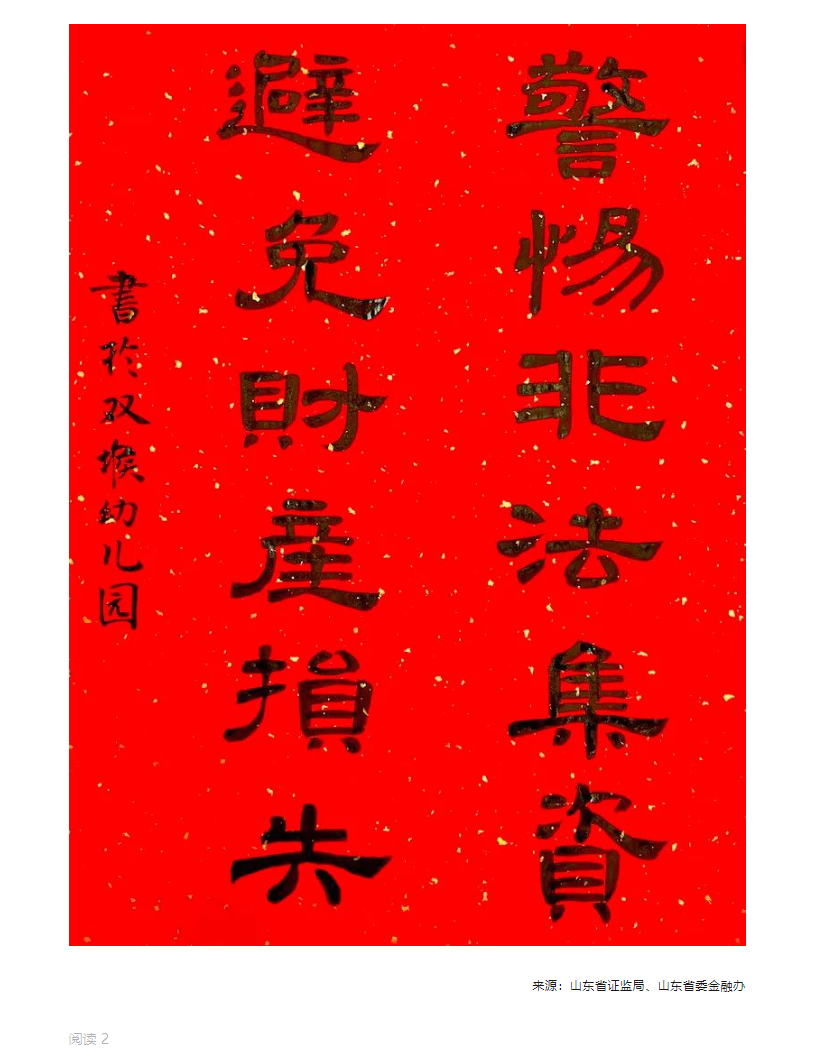 警惕非法集資
避免財產損失
書於双堠幼儿园
来源：山东省证监局、山东省委金融办
阅读 2